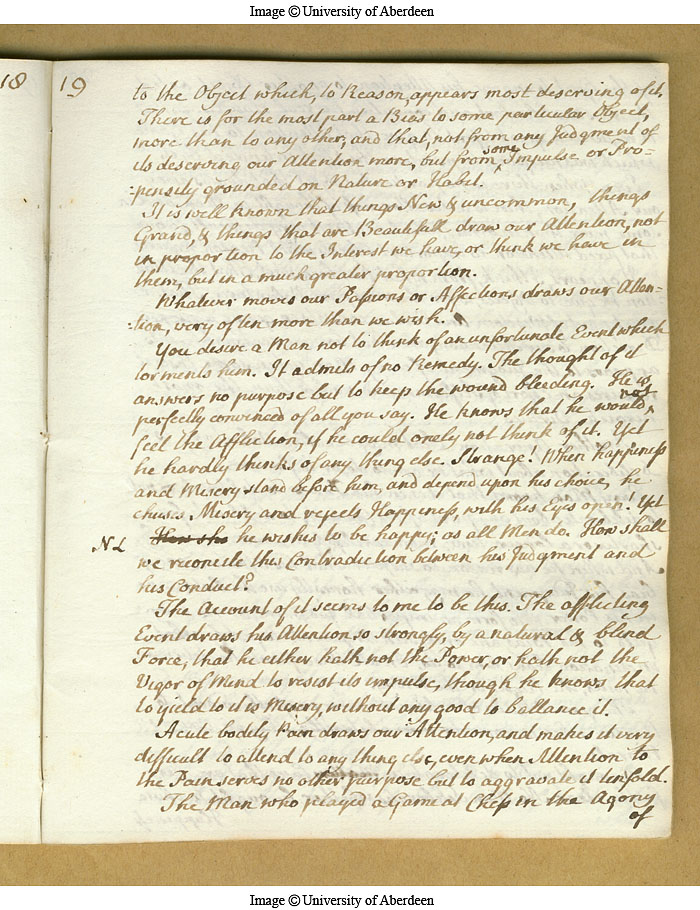 Image © University of Aberdeen
18
19
to the Object which, to Reason, appears most deserving of it.
There is for the most part a Bias to some particular Object,
more than to any other, and that, not from any Judgment of
its deserving our Attention more, but from some Impulse or Pro=
=pensity grounded on Nature or Habit.
It is well known that things New & uncommon, things
Grand, & things that are Beautifull draw our Attention, not
in proportion to the Interest we have, or think we have in
them, but in a much greater proportion.
Whatever moves our Passions or Affections draws our Atten=
=tion, very often more than we wish.
You desire a Man not to think of an unfortunate Event which
torments him. It admits of no Remedy. The thought of it
answers no purpose but to keep the wound bleeding. He is
perfectly convinced of all you say. He knows that he would not
feel the Affliction, if he could onely not think of it. Yet
he hardly thinks of any thing else. Strange! When happiness
and Misery stand before him, and depend upon his choice, he
chuses Misery and rejects Happiness, with his Eyes open! Yet
NL How sha he wishes to be happy; as all Men do. How shall
we reconcile this Contradiction between his Judgment and
his Conduct?
The Account of it seems to me to be this. The afflicting
Event draws his Attention so strongly, by a natural & blind
Force, that he either hath not the Power, or hath not the
Vigor of Mind to resist its impulse, though he knows that
to yield to it is Misery, without any good to ballance it.
Acute bodily Pain draws our Attention, and makes it very
difficult to attend to any thing else, even when Attention to
the Pain serves no other purpose but to aggravate it tenfold.
The Man who played a Game at Chess in the Agony
of
Image © University of Aberdeen